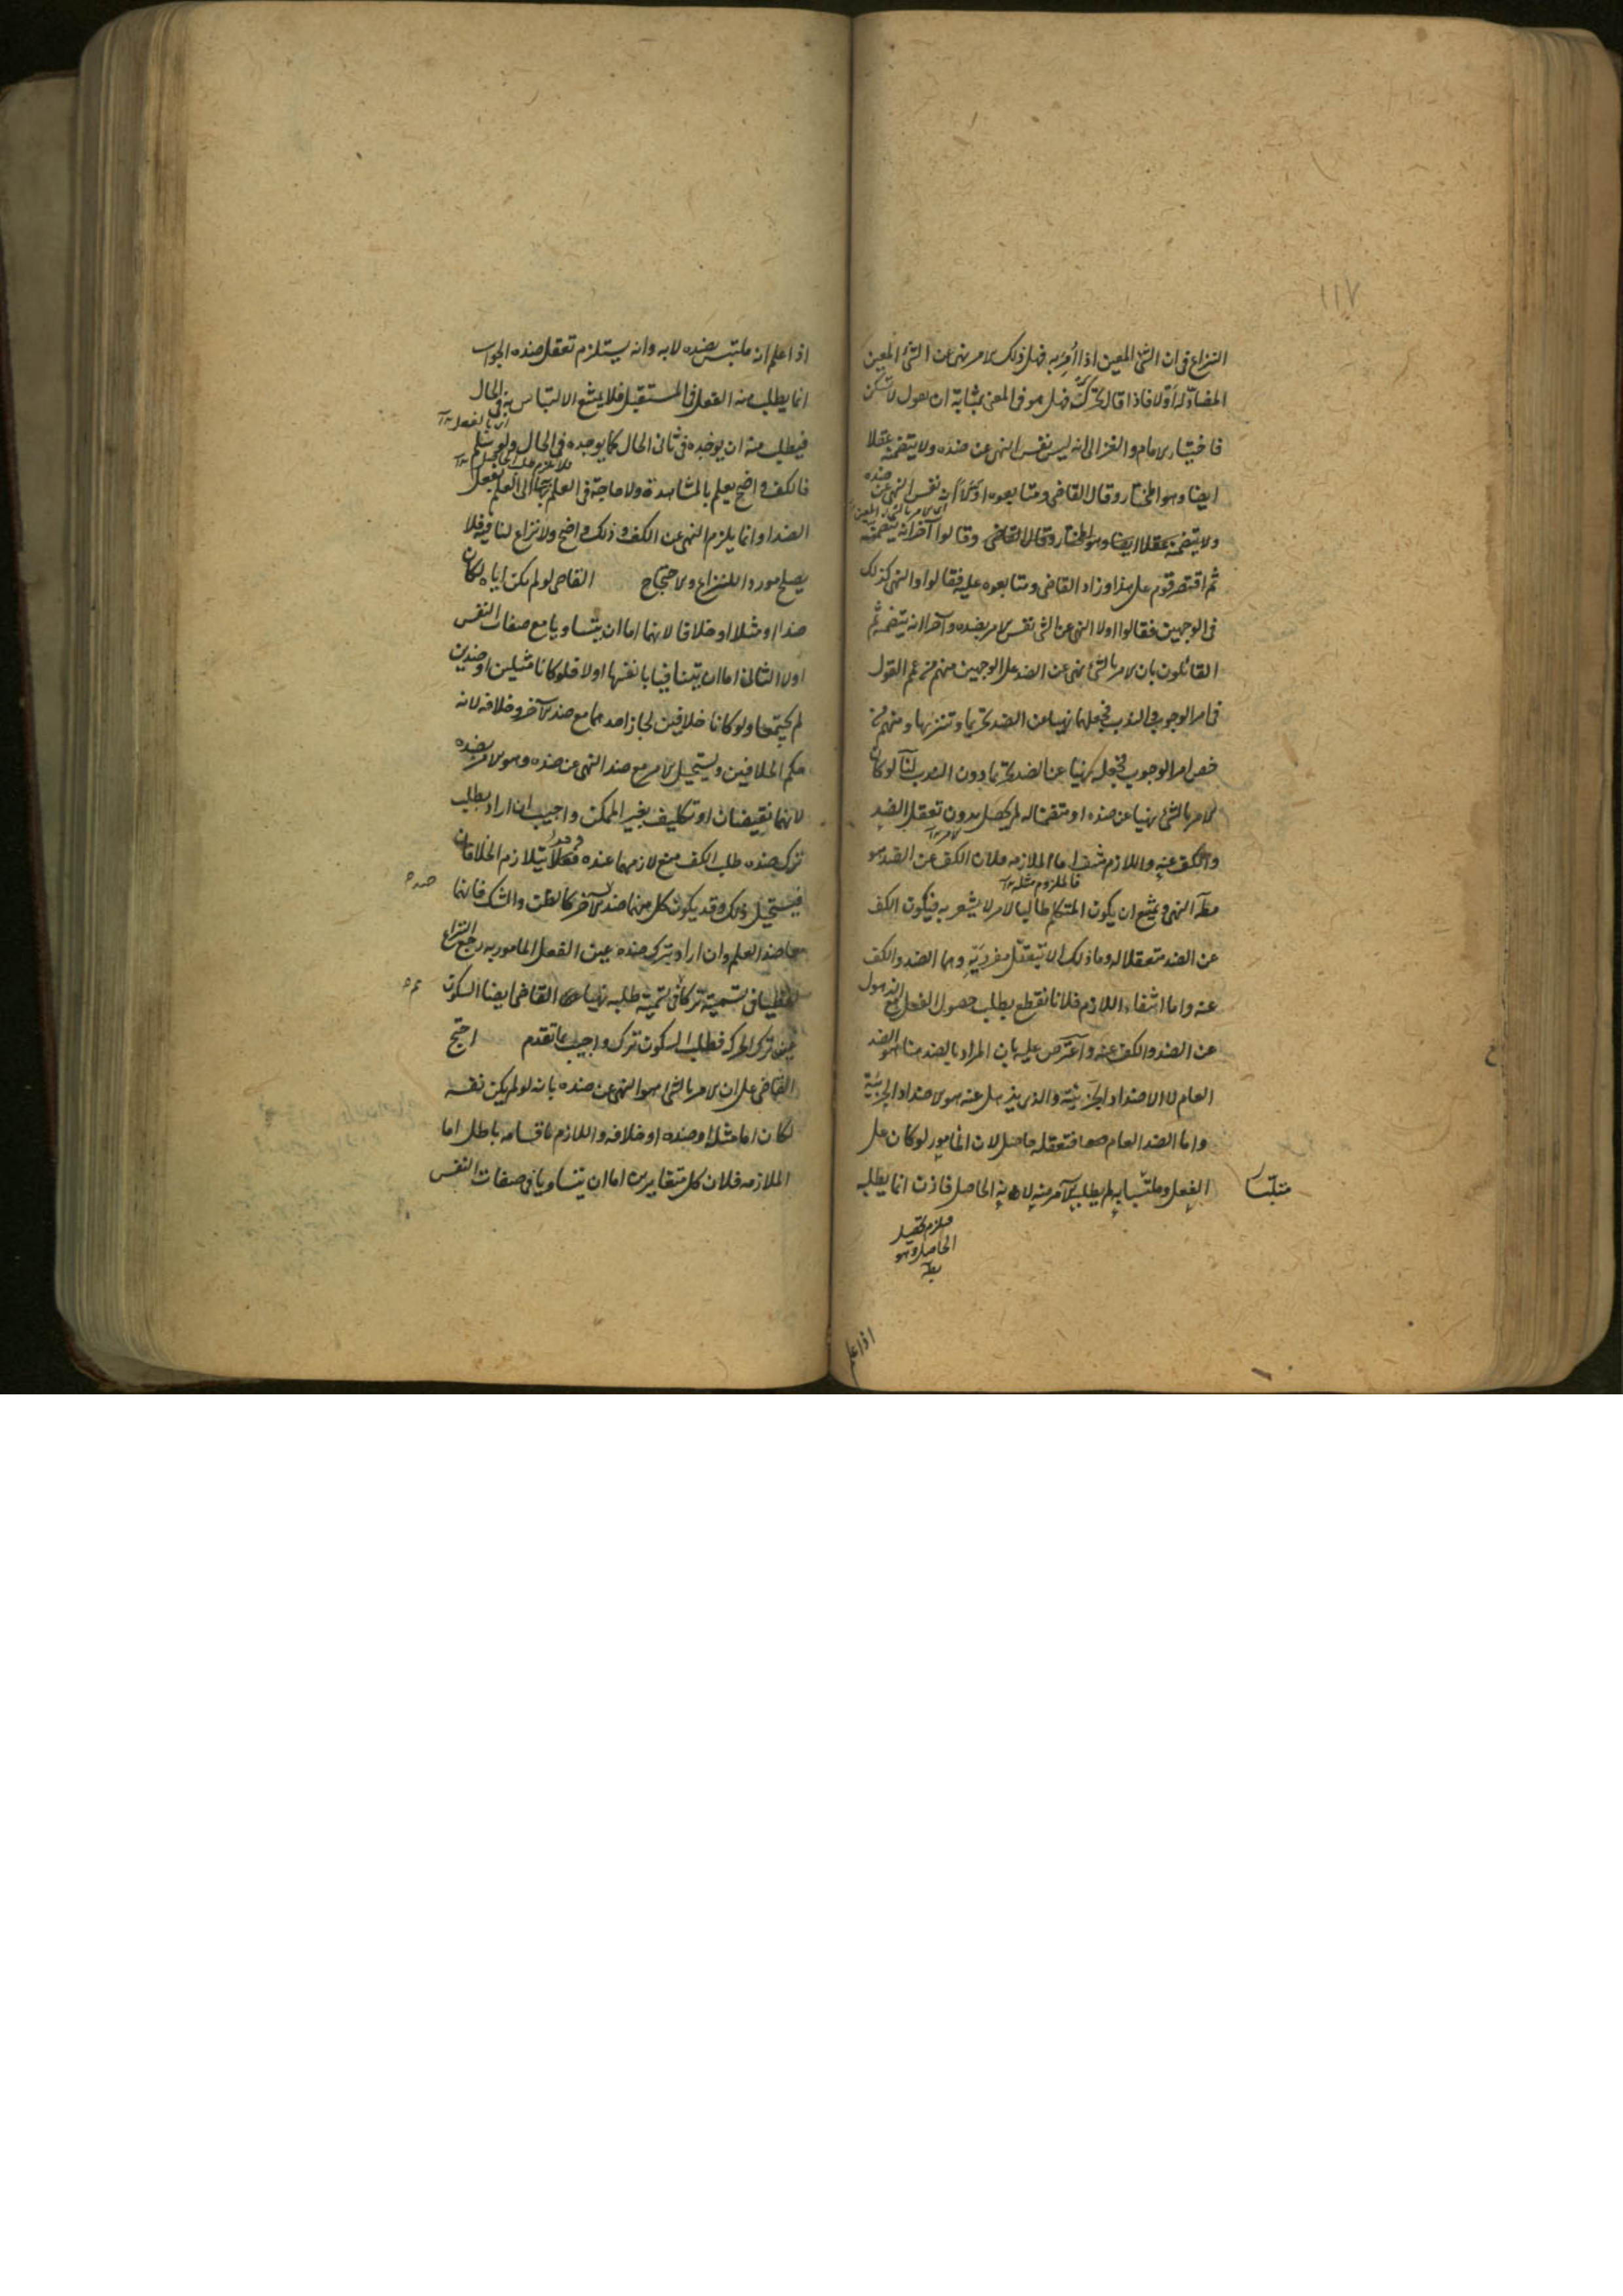 ١١٧
النزاع فى ان الشئ المعين اذا اُمِرَ به فهل ذلك الامر نهى عن الشئ المعين
المضادّ له اَوْلا فاذا قال تحرّك فهل هو فى المعنى بمثابة ان يقول لا تسكن
فاختيار الامام والغزالى انه ليس نفس النهى عن ضده ولا يتضمنه عقلا
ايضا وهو المختار وقال القاضى ومتابعوه اوّلاً انه نفس النهى عن ضده
اى الامر بالشئ المعين
ولا يتضمنه عقلا ايضا وهو المختار وقال القاضى وقالوا آخرا انه يتضمنه
ثم اقتصر قوم على هذا وزاد القاضى ومتابعوه عليه فقالوا والنهى كذلك
فى الوجهين فقالوا اولا النهى عن الشئ نفس الامر بضده وآخرا انه يتضمنه ثم
القائلون بان الامر بالشئ نهى عن الضد على الوجهين منهم من عمم القول
فى امر الوجوب والندب فجعلهما نهيا عن الضد تحريما وتنزيها ومنهم من
خص امر الوجوب فجعله نهيا عن الضد تحريما دون الندب لنا لو كان
الامر بالشئ نهيا عن ضده او متضمنا له لم يحصل بدون تعقل الضد
والكف عنه واللازم منتف اما الملازمه فلان الكف عن الضد هو
فالملزوم مثله
مط النهى ويمتنع ان يكون المتكلم طالبا لامر لا يشعر به فيكون الكف
عن الضد متعقلا له وما ذلك الا بتعقّل مفرديّه وهما الضد والكف
عنه واما انتفاء اللازم فلانا نقطع بطلب حصول الفعل مع الذهول
عن الضد والكف عنه واعترض عليه بان المراد بالضد هنا هو الضد
العام لا الاضداد الجزئية والذى يذهل عنه هو الاضداد الجزئية
واما الضد العام فتعقله حاصل لان المامور لو كان على
الفعل وملتبسا به لم يطلبه الآمر منه لانه الحاصل فاذن انما يطلبه
متلبّسا
فيلزم تحصيل
الحاصل وهو
بط
اذا علم
اذا علم انه ملتبس بضده لا به وانه يستلزم تعقل ضده الجواب
انما يطلب منه الفعل فى المستقبل فلا يمنع الالتباس به فى الحال
فيطلب منه ان يوجده فى ثانى الحال كما يوجده فى الحال ولو سلم
فالكف واضح يعلم بالمشاهدة ولا حاجة فى العلم به الى العلم بفعل
الضد وانما يلزم النهى عن الكف وذلك واضح ولا نزاع لنا فيه فلا
يصلح موردا للنزاع والاحتجاج القاضى لو لم يكن اياه لكان
ضدا او مثلا او خلافا لانهما اما ان يتساويا مع صفات النفس
اولا الثانى اما ان يتنافيا بانفسها اولا فلو كانا مثلين او ضدين
لم يجتمعا ولو كانا خلافين لجاز احدهما مع ضد الآخر وخلافه لانه
حكم الخلافين ويستحيل الامر مع ضد النهى عن ضده وهو الامر بضده
لانهما نقيضان او تكليف بغير الممكن واجيب ان اراد بطلب
ترك ضده طلب الكف منع لازمهما عنده فقد يتلازم الخلافان
فيستحيل ذلك وقد يكون كل منهما ضد الآخر كالظن والشك فانهما
معا ضد العلم وان اراد بترك ضده عين الفعل المامور به رجع النزاع
لفظيا فى تسميته تركا فى تسمية طلبه نهيا القاضى ايضا السكون
عين ترك الحركه فطلب السكون ترك واجيب بما تقدم احتج
القاضى على ان الامر بالشئ هو النهى عن ضده بانه لو لم يكن نفسه
لكان اما مثله او ضده او خلافه واللازم باقسامه باطل اما
الملازمه فلان كل متغايرين اما ان يتساويا فى صفات النفس